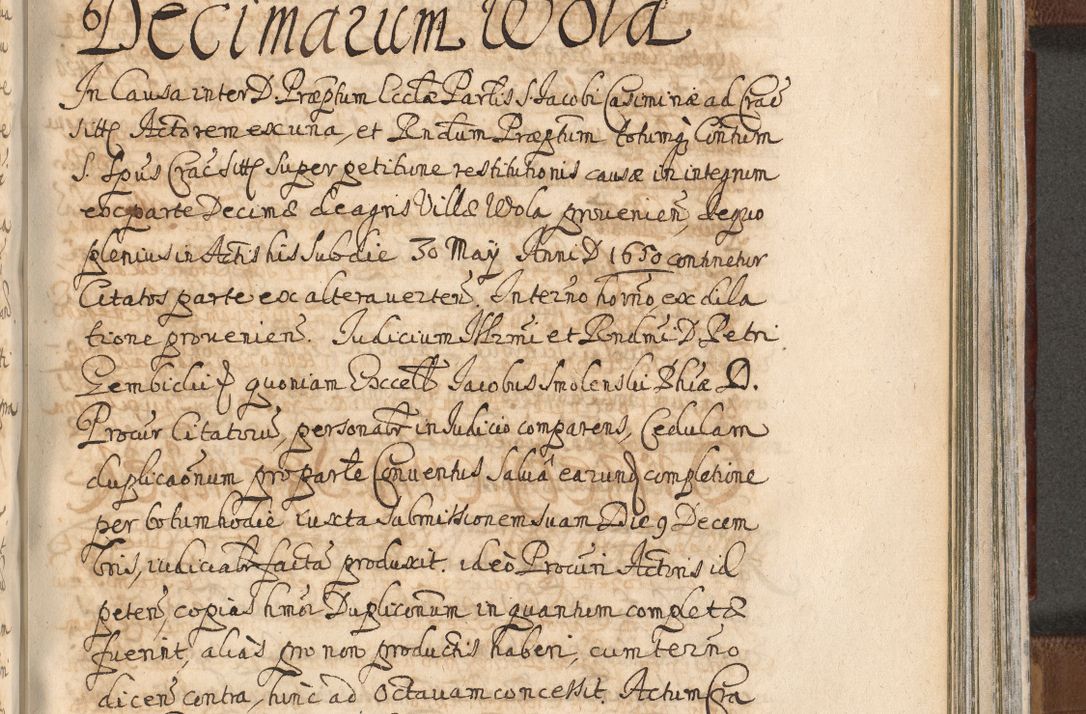 Decimarum Wola
In Causa inter D. Præptum Ecctæ Partis S. Jacobi Casimiriæ ad Crac
sittę Actorem ex una, et Rndum Præptum totumq Contum
S. Spūs Crac sittę super petitione restitutionis causæ in integrum
ex parte Decimæ de agris Villæ Wola provenien, de quo
plenius in Actis his sub die 30 May Anni D. 1650 continetur
Citatos parte ex altera verten. In termo horno ex dila
tione provenien. Judicium Illrmi et Rndmi D. Petri
Gembicki quoniam Excell Jacobus Smolenski Phiæ D.
Procur Citatorus, personalr in Judicio comparens, Cedulam
duplicaonum pro parte Conventus salva earund completione
per totum hodie iuxta submissionem suam Die 9 Decem
bris, iudicialr facta produxit. ideò Procuri Actoris id
peten, copias hmoi Dupliconum in quantum completæ
fuerint, aliàs pro non productis haberi, cum termo
dicen contra, hinc ad Octavam concessit. Actum Cra